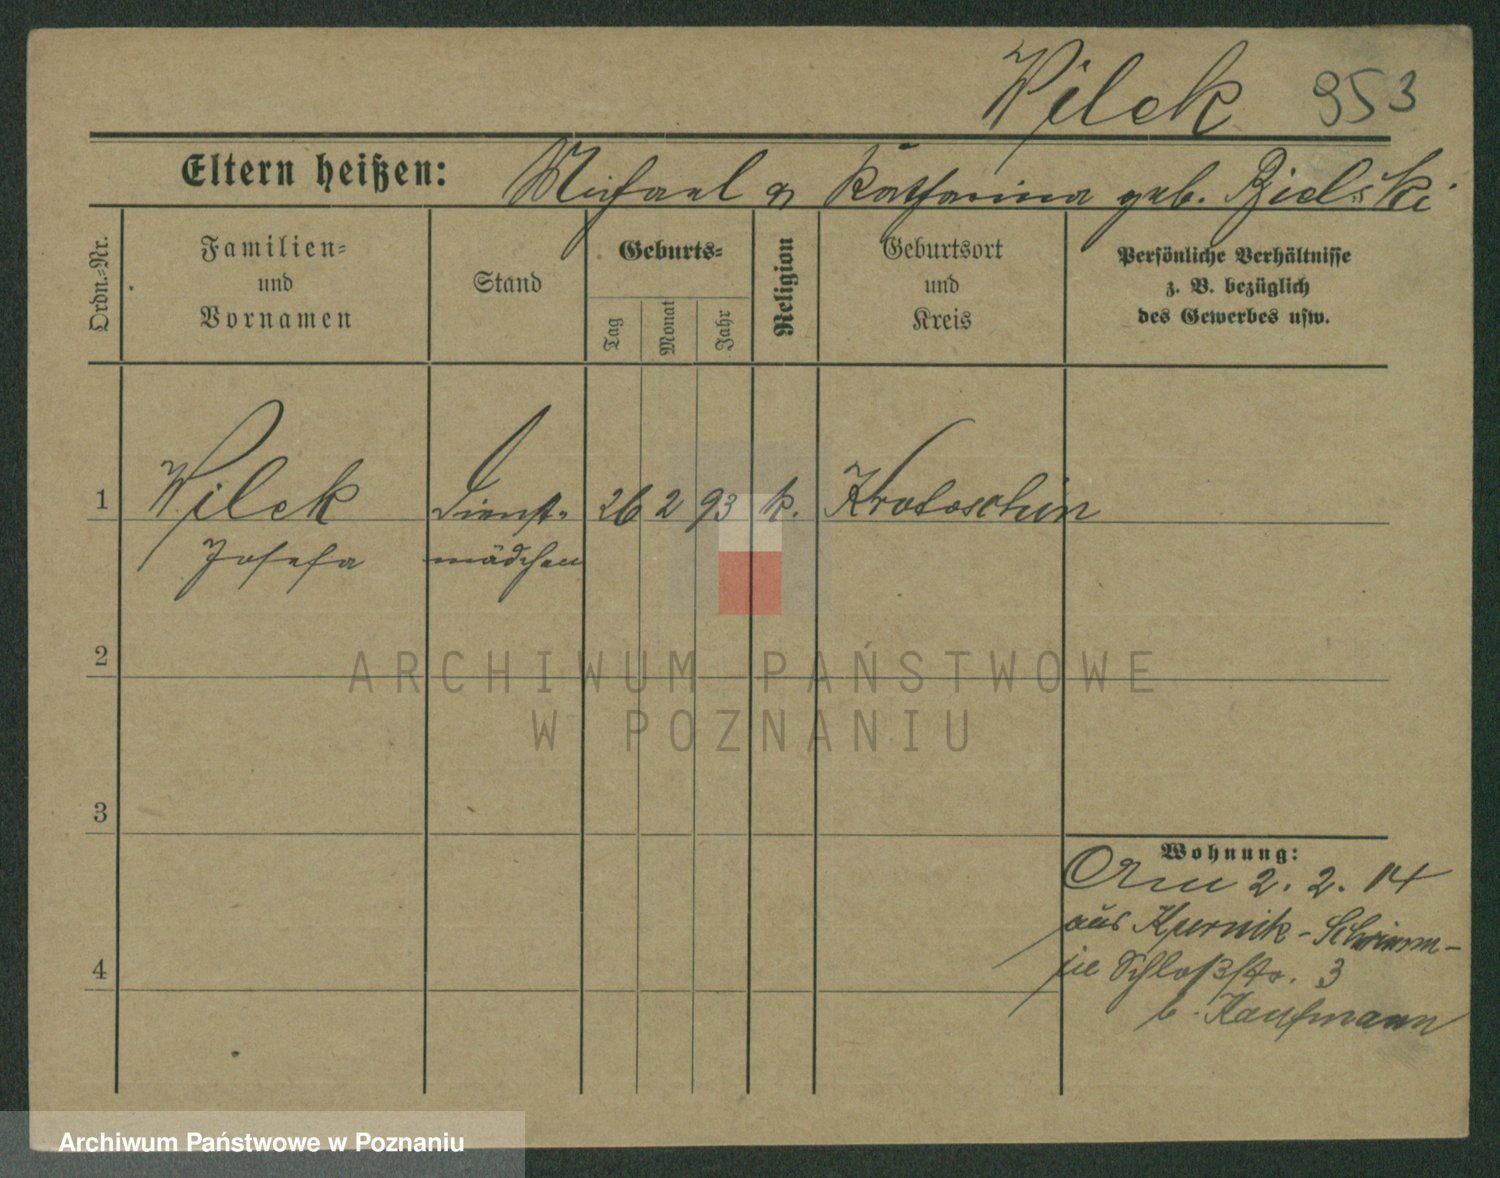 Wilck 953
Eltern heißen: Michael u Katharina geb. Bielski
Ordn.-Nr.
Familien-
und
Vornamen
Stand
Geburts-
Tag
Monat
Jahr
Religion
Geburtsort
und
Kreis
Persönliche Verhältnisse
z. B. bezüglich
des Gewerbes usw.
1 Wilck Dienst- 26 2 93 k. Krotoschin
Josefa mädchen
2
3
4
Wohnung:
Am 2. 2. 14
aus Kurnik - Schrimm -
Schloßstr. 3
b. Kaufmann
ARCHIWUM PAŃSTWOWE
W POZNANIU
Archiwum Państwowe w Poznaniu